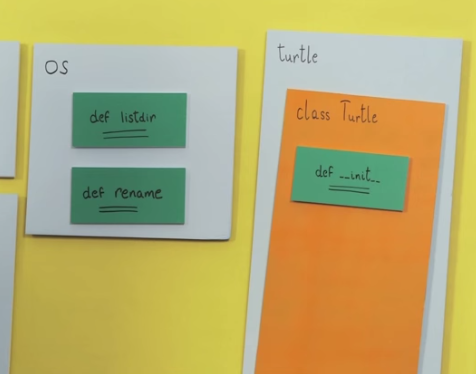 OS
def listdir
def rename
turtle
class Turtle
def __init__